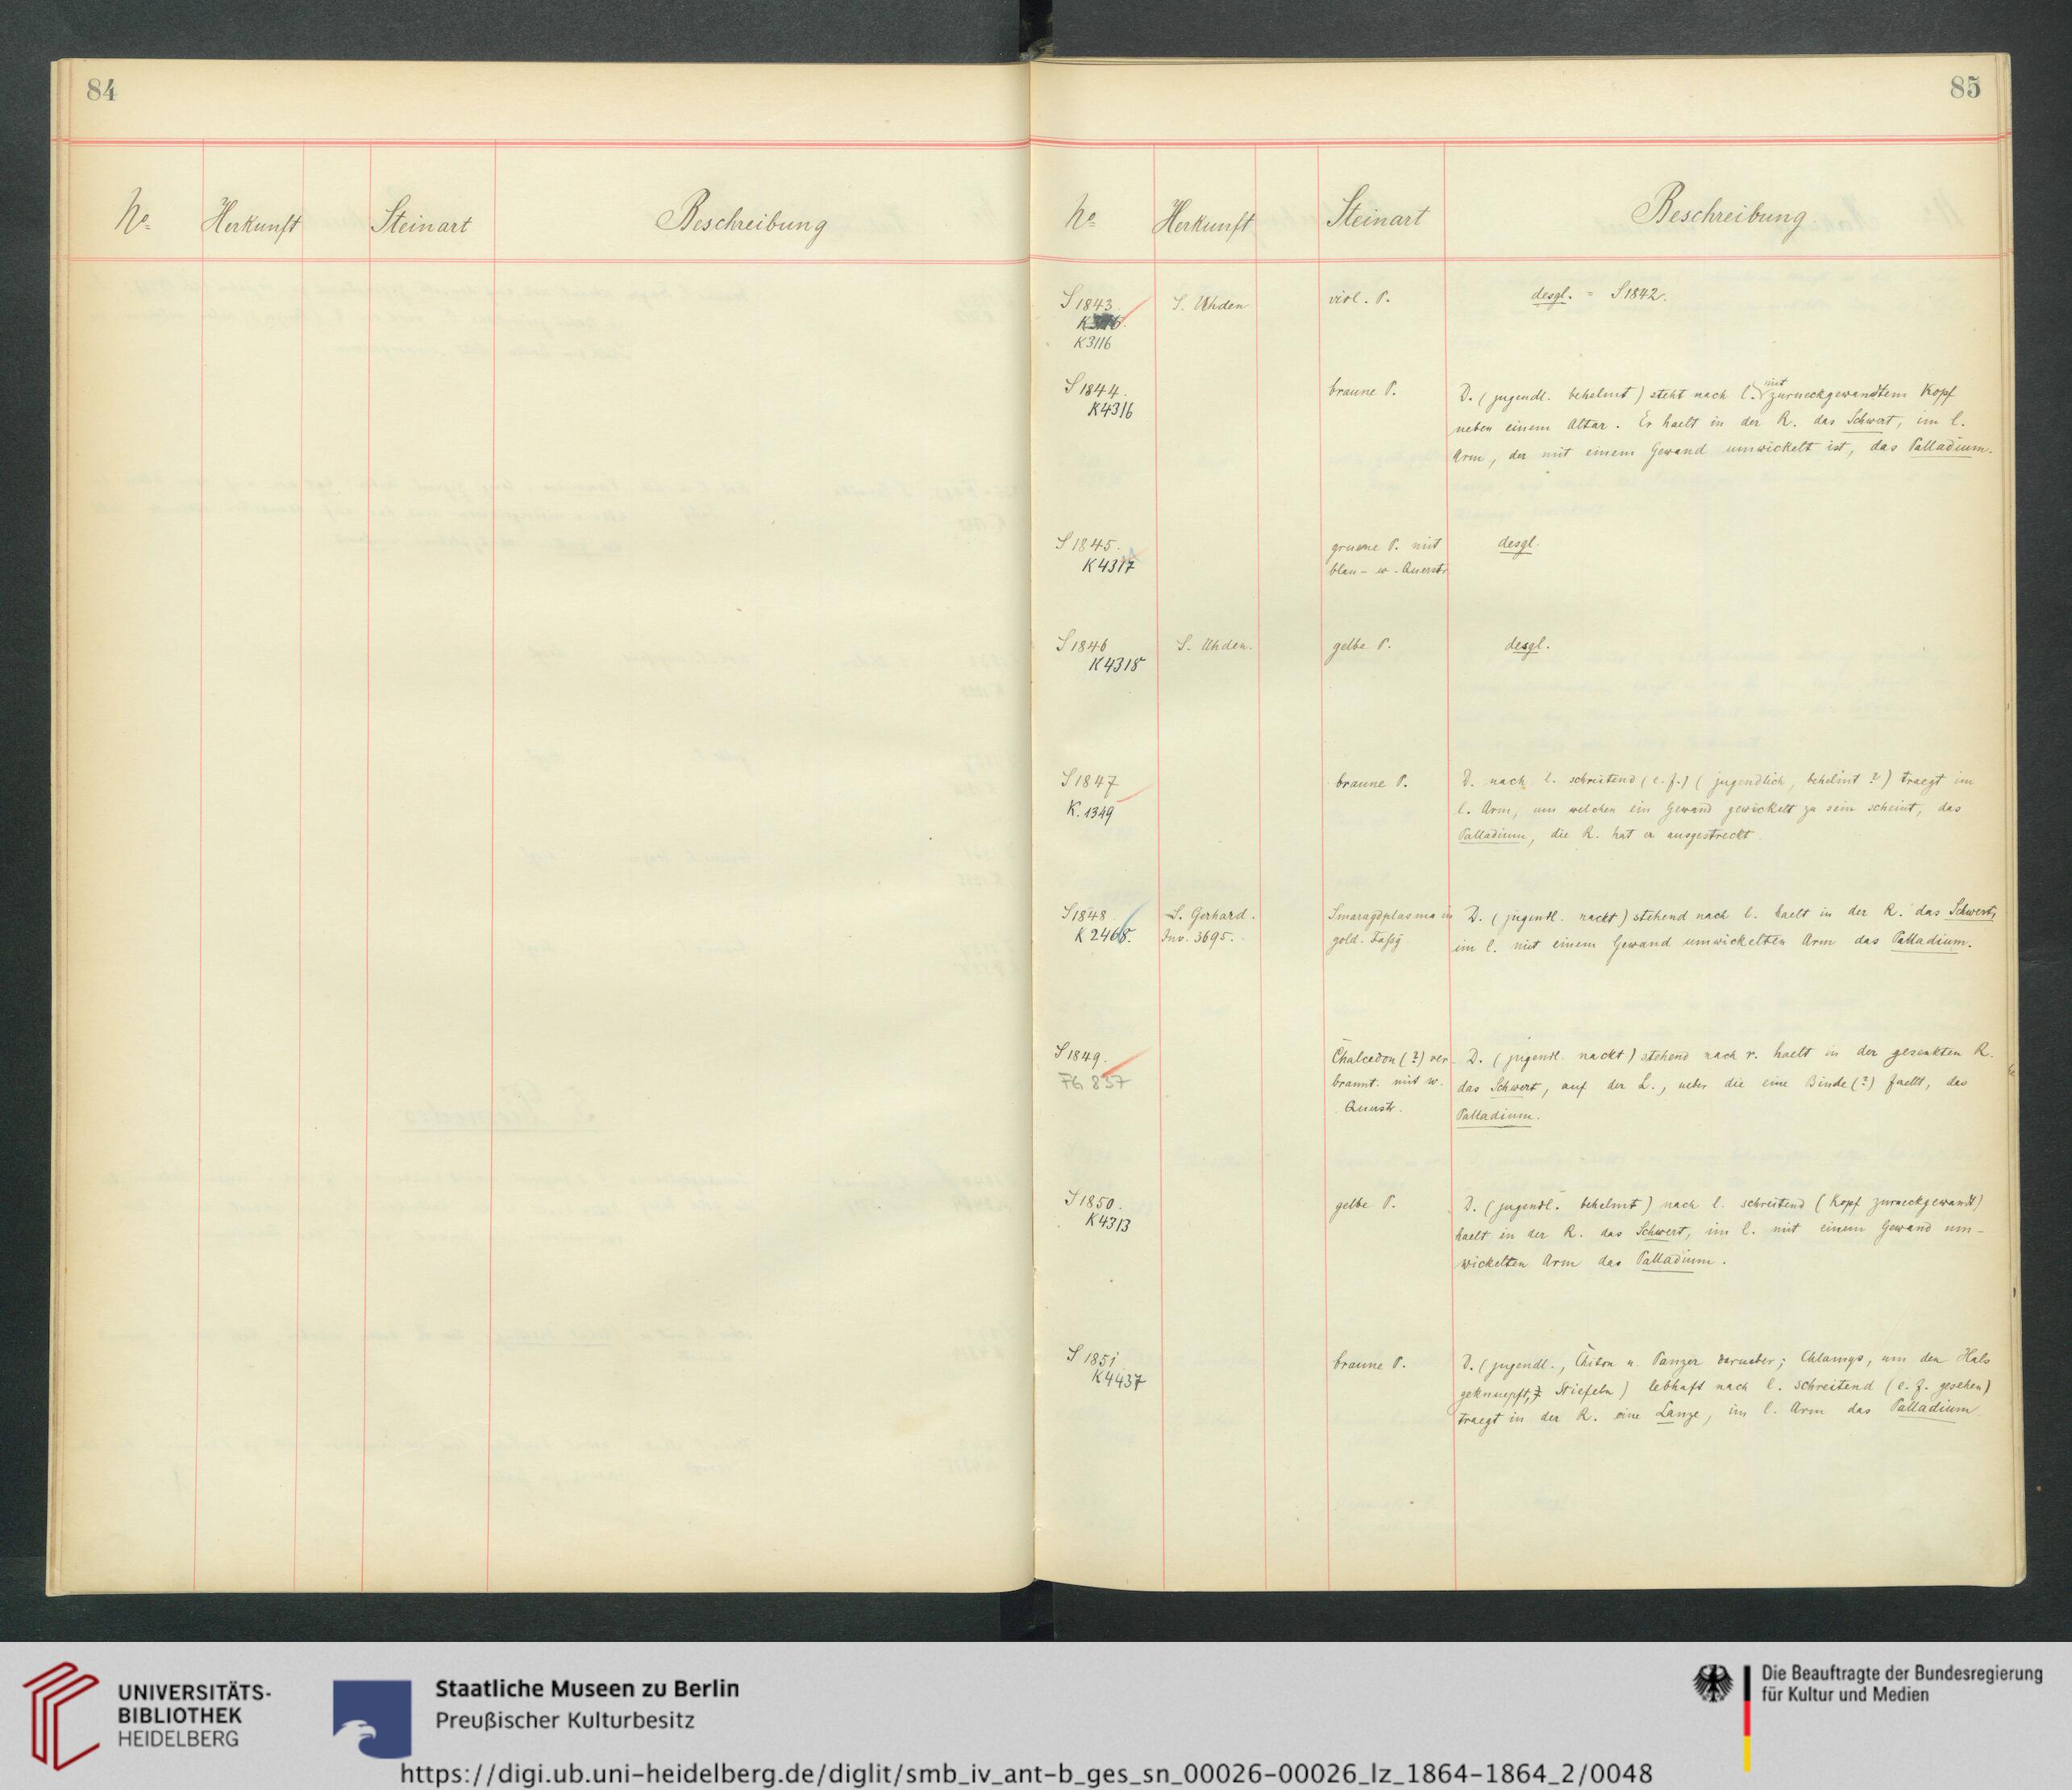 84
No. Herkunft Steinart Beschreibung
85
No. Herkunft Steinart Beschreibung
S 1843. S. Uhden viol. P. desgl. = S 1842.
K 3116
S 1844. braune P. D. (jugendl. behelmt) steht nach l. mit zurueckgewandtem Kopf
K 4316 neben einem Altar. Er haelt in der R. das Schwert, im l.
Arm, der mit einem Gewand umwickelt ist, das Palladium.
S 1845. gruene P. mit desgl.
K 4317 blau - w. Querstr.
S 1846 S. Uhden. gelbe P. desgl.
K 4318
S 1847 braune P. D. nach l. schreitend (e. f.) (jugendlich, behelmt ?) traegt im
K. 1349 l. Arm, um welchen ein Gewand gewickelt zu sein scheint, das
Palladium, die R. hat er ausgestreckt.
S 1848 S. Gerhard. Smaragdplasma in D. (jugendl. nackt) stehend nach l. haelt in der R. das Schwert,
K 2468. Inv. 3695. gold. Fassg im l. mit einem Gewand umwickelten Arm das Palladium.
S 1849. Chalcedon (?) ver- D. (jugendl. nackt) stehend nach r. haelt in der gesenkten R.
FG 837 brannt. mit w. das Schwert, auf der L., ueber die eine Binde (?) faellt, das
Querstr. Palladium.
S 1850. gelbe P. D. (jugendl. behelmt) nach l. schreitend (Kopf zurueckgewandt)
K 4313 haelt in der R. das Schwert, im l. mit einem Gewand um-
wickelten Arm das Palladium.
S 1851 braune P. D. (jugendl., Chiton u. Panzer darueber; Chlamys, um den Hals
K 4437 geknuepft, Stiefeln) lebhaft nach l. schreitend (e. f. gesehen)
traegt in der R. eine Lanze, im l. Arm das Palladium
UNIVERSITÄTS-
BIBLIOTHEK
HEIDELBERG
Staatliche Museen zu Berlin
Preußischer Kulturbesitz
Die Beauftragte der Bundesregierung
für Kultur und Medien
https://digi.ub.uni-heidelberg.de/diglit/smb_iv_ant-b_ges_sn_00026-00026_lz_1864-1864_2/0048